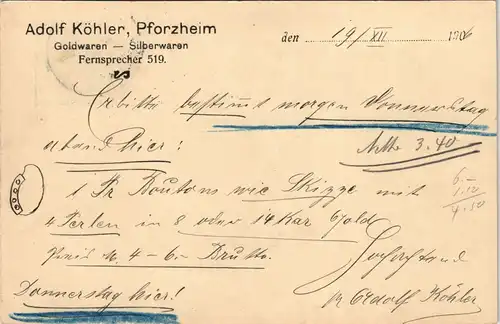 Adolf Köhler, Pforzheim
Goldwaren — Silberwaren
Fernsprecher 519.
den 19/XII 1906
Erbitte bestimmt morgen Donnerstag
abend hier:
Netto 3.40
1 Pr Boutons wie Skizze mit
4 Perlen in 8 oder 14 Kar Gold
Preis M. 4–6.– Brutto.
6.–
1.50
4.50
Hochachtend
Donnerstag hier!
Adolf Köhler